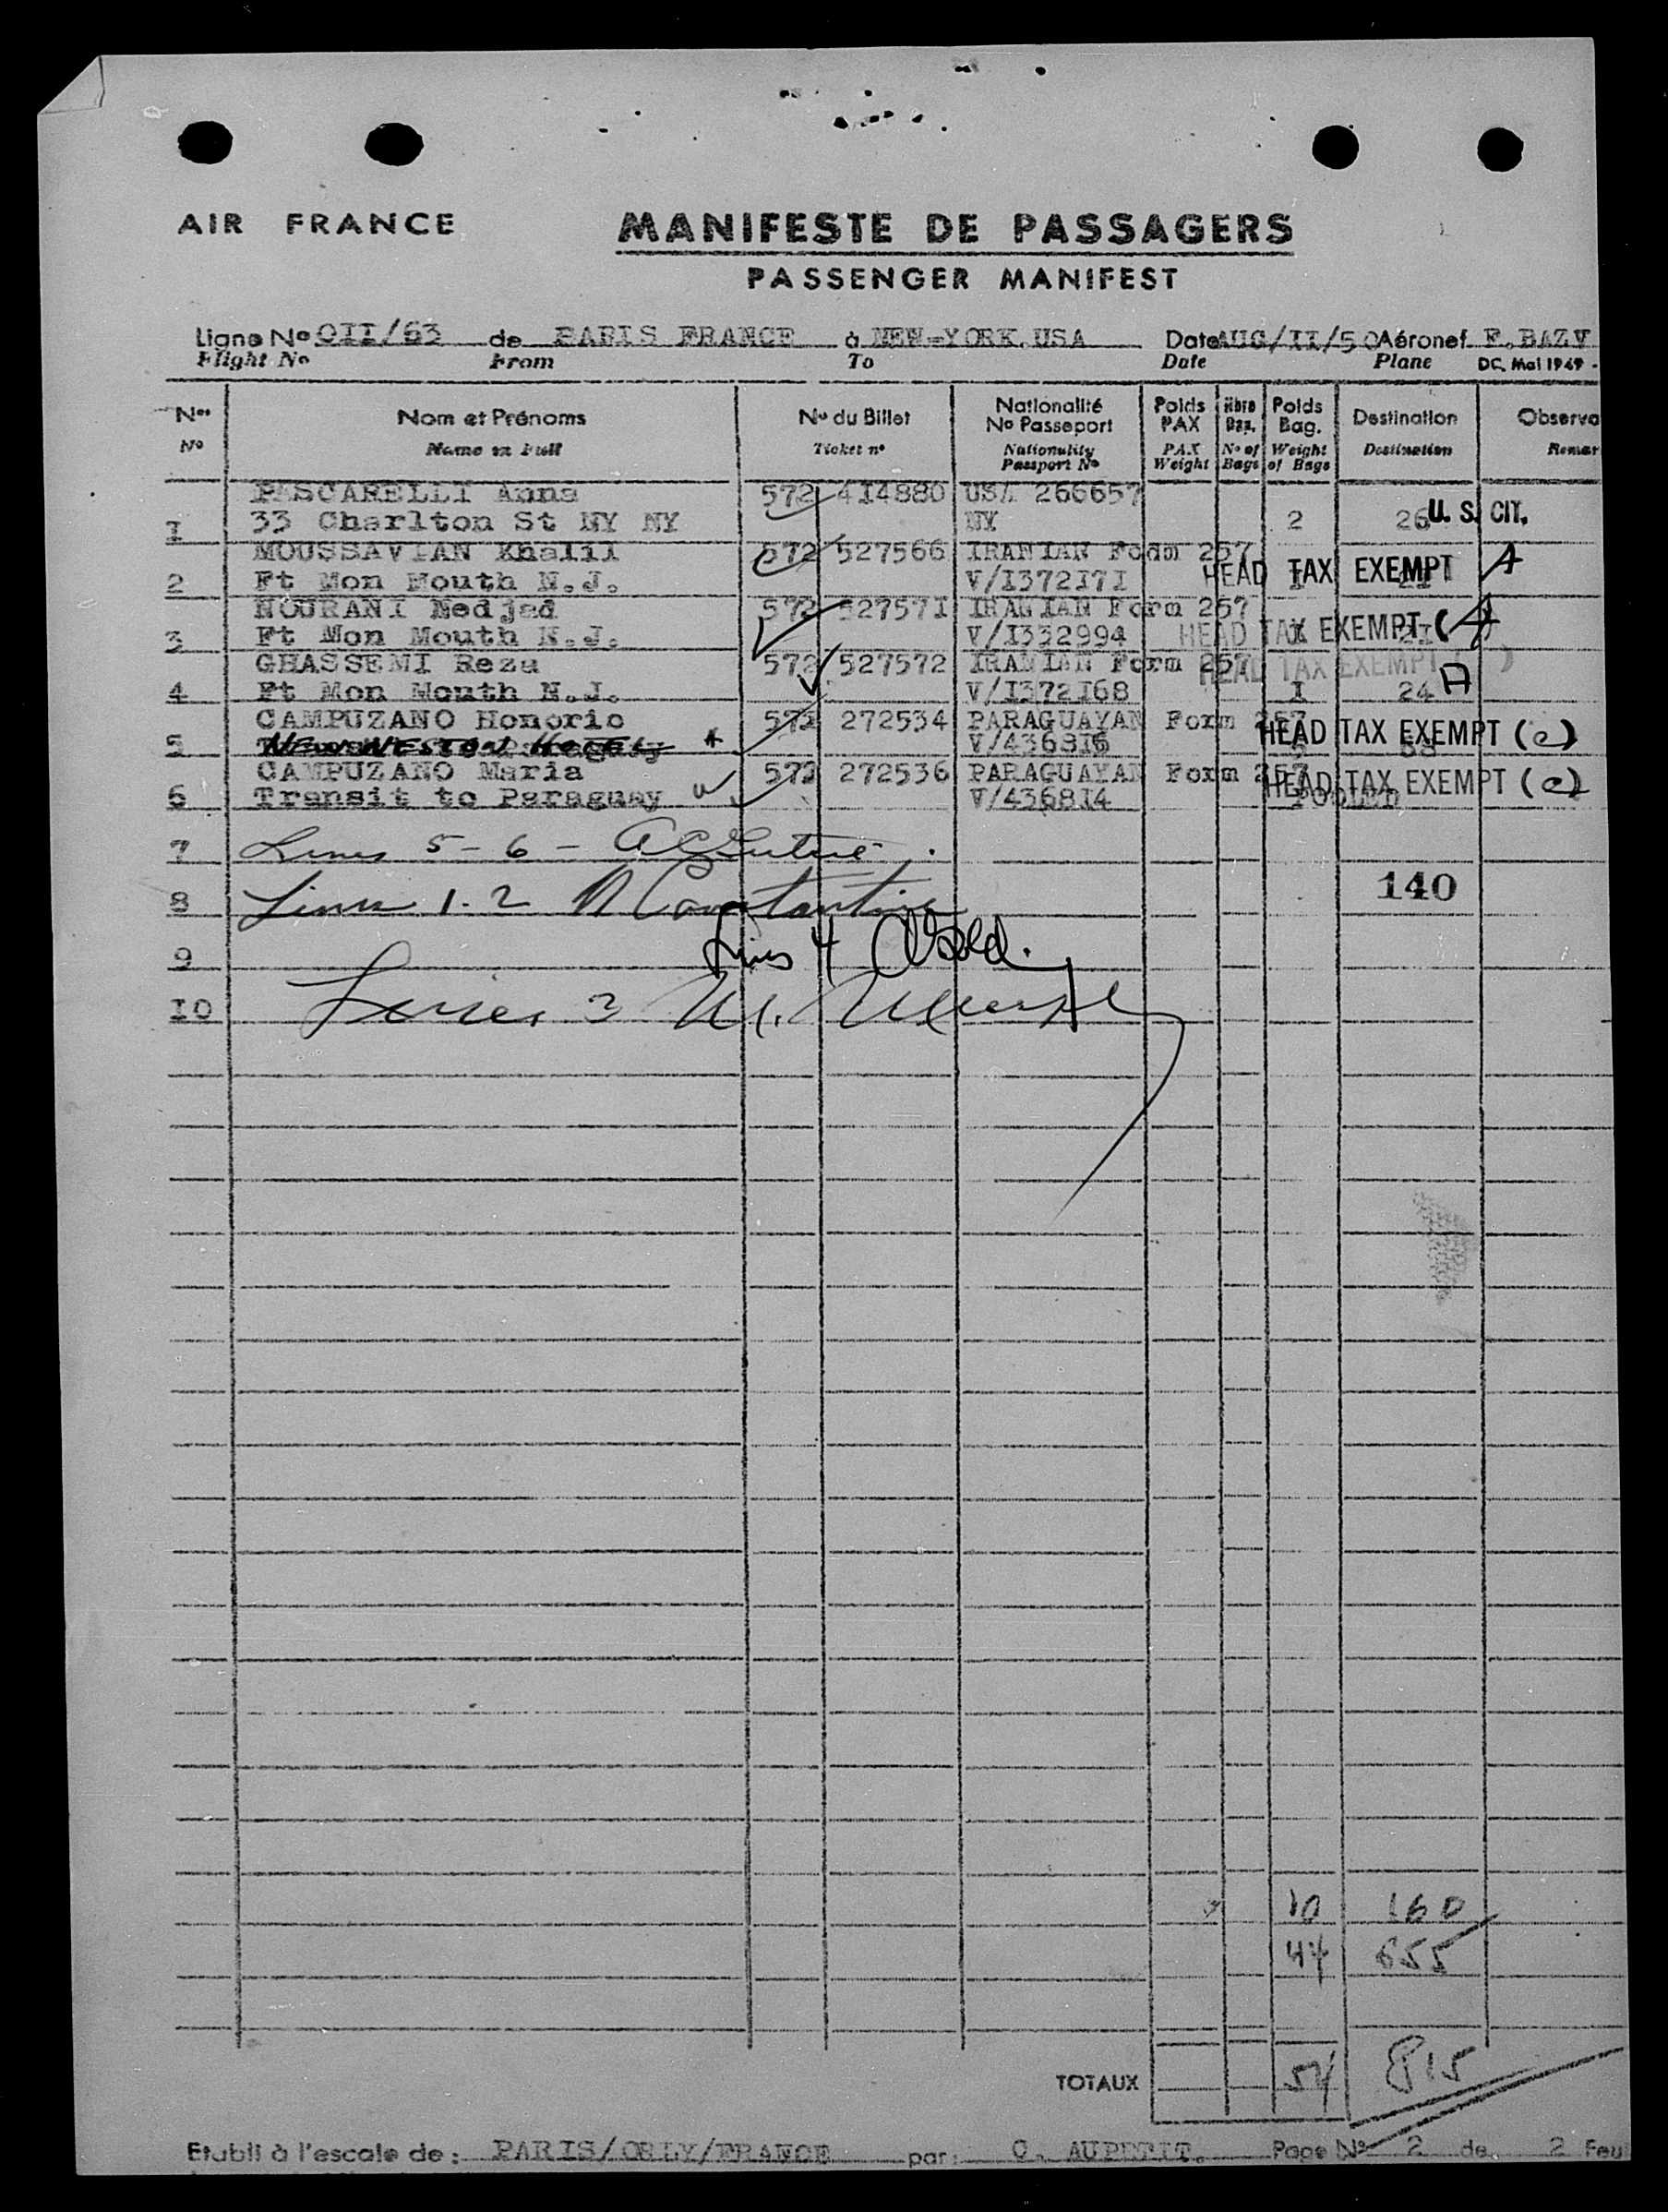 AIR FRANCE
MANIFESTE DE PASSAGERS
PASSENGER MANIFEST
Ligne No OII/63 de PARIS FRANCE à NEW-YORK.USA Date AUG/II/50 Aéronef F.BAZV
Flight No From To Date Plane DC. Mai 1949 -
Nos Nom et Prénoms No du Billet Nationalité No Passeport Poids PAX Nbre Bag. Poids Bag. Destination Observa
No Name in Full Ticket no Nationality Passport No PAX Weight No of Bags Weight of Bags Destination Remar
PASCARELLI Anna 572 4I4880 USA 266657
I 33 Charlton St NY NY NY 2 26 U. S. CIT.
MOUSSAVIAN Khalil 572 527566 IRANIAN Form 257
2 Ft Mon Mouth N.J. V/I372I7I HEAD TAX EXEMPT A
NOURANI Nedjad 572 52757I IRANIAN Form 257
3 Ft Mon Mouth N.J. V/I332994 HEAD TAX EXEMPT (A)
GHASSEMI Reza 572 527572 IRANIAN Form 257 HEAD TAX EXEMPT ( )
4 Ft Mon Mouth N.J. V/I372I68 I 24 A
CAMPUZANO Honorio 572 272534 PARAGUAYAN Form 257
5 NEW WESTON HOTEL V/4368I6 HEAD TAX EXEMPT (c)
CAMPUZANO Maria 572 272536 PARAGUAYAN Form 257
6 Transit to Paraguay V/4368I4 POOLED HEAD TAX EXEMPT (c)
7 Lines 5 - 6 -
8 Lines 1-2 Constantine 140
9 Lines 4
IO Lines 3 M.
10 160
44 655
TOTAUX 54 815
Etabli à l'escale de: PARIS/ORLY/FRANCE par: C. AUPETIT. Page No 2 de 2 Feu